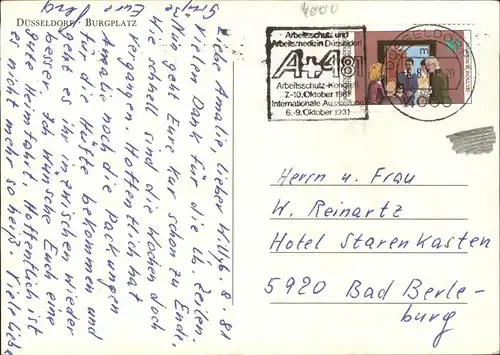 DÜSSELDORF · BURGPLATZ
4000
Arbeitsschutz und
Arbeitsmedizin Düsseldorf
A+A 81
Arbeitsschutz-Kongreß
7.-10. Oktober 1981
Internationale Ausstellung
6.-9. Oktober 1981
DÜSSELDORF
4000
Liebe Amalie, lieber Willy, 6. 8. 81
Vielen Dank für die lb. Zeilen.
Nun geht Eure Kur schon zu Ende.
Wie schnell sind die Wochen doch
vergangen. Hoffentlich hat
Amalie noch die Packungen
für die Hüfte bekommen und
geht es ihr inzwischen wieder
besser. Ich wünsche Euch eine
gute Heimfahrt. Hoffentlich ist
es nicht mehr so heiß. Viel liebe
Grüße
Eure
Herrn u. Frau
W. Reinartz
Hotel Starenkasten
5920 Bad Berle-
burg